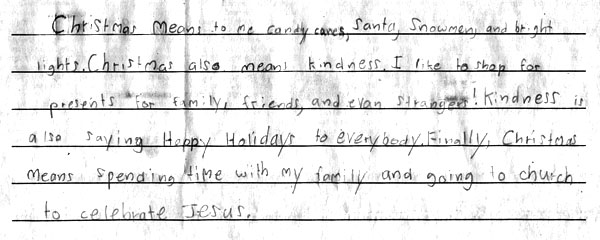 Christmas means to me candy canes, Santa, Snowmen, and bright
lights. Christmas also means kindness. I like to shop for
presents for family, friends, and evan strangers! Kindness is
also saying Happy Holidays to everybody. Finally, Christmas
means spending time with my family and going to church
to celebrate Jesus.